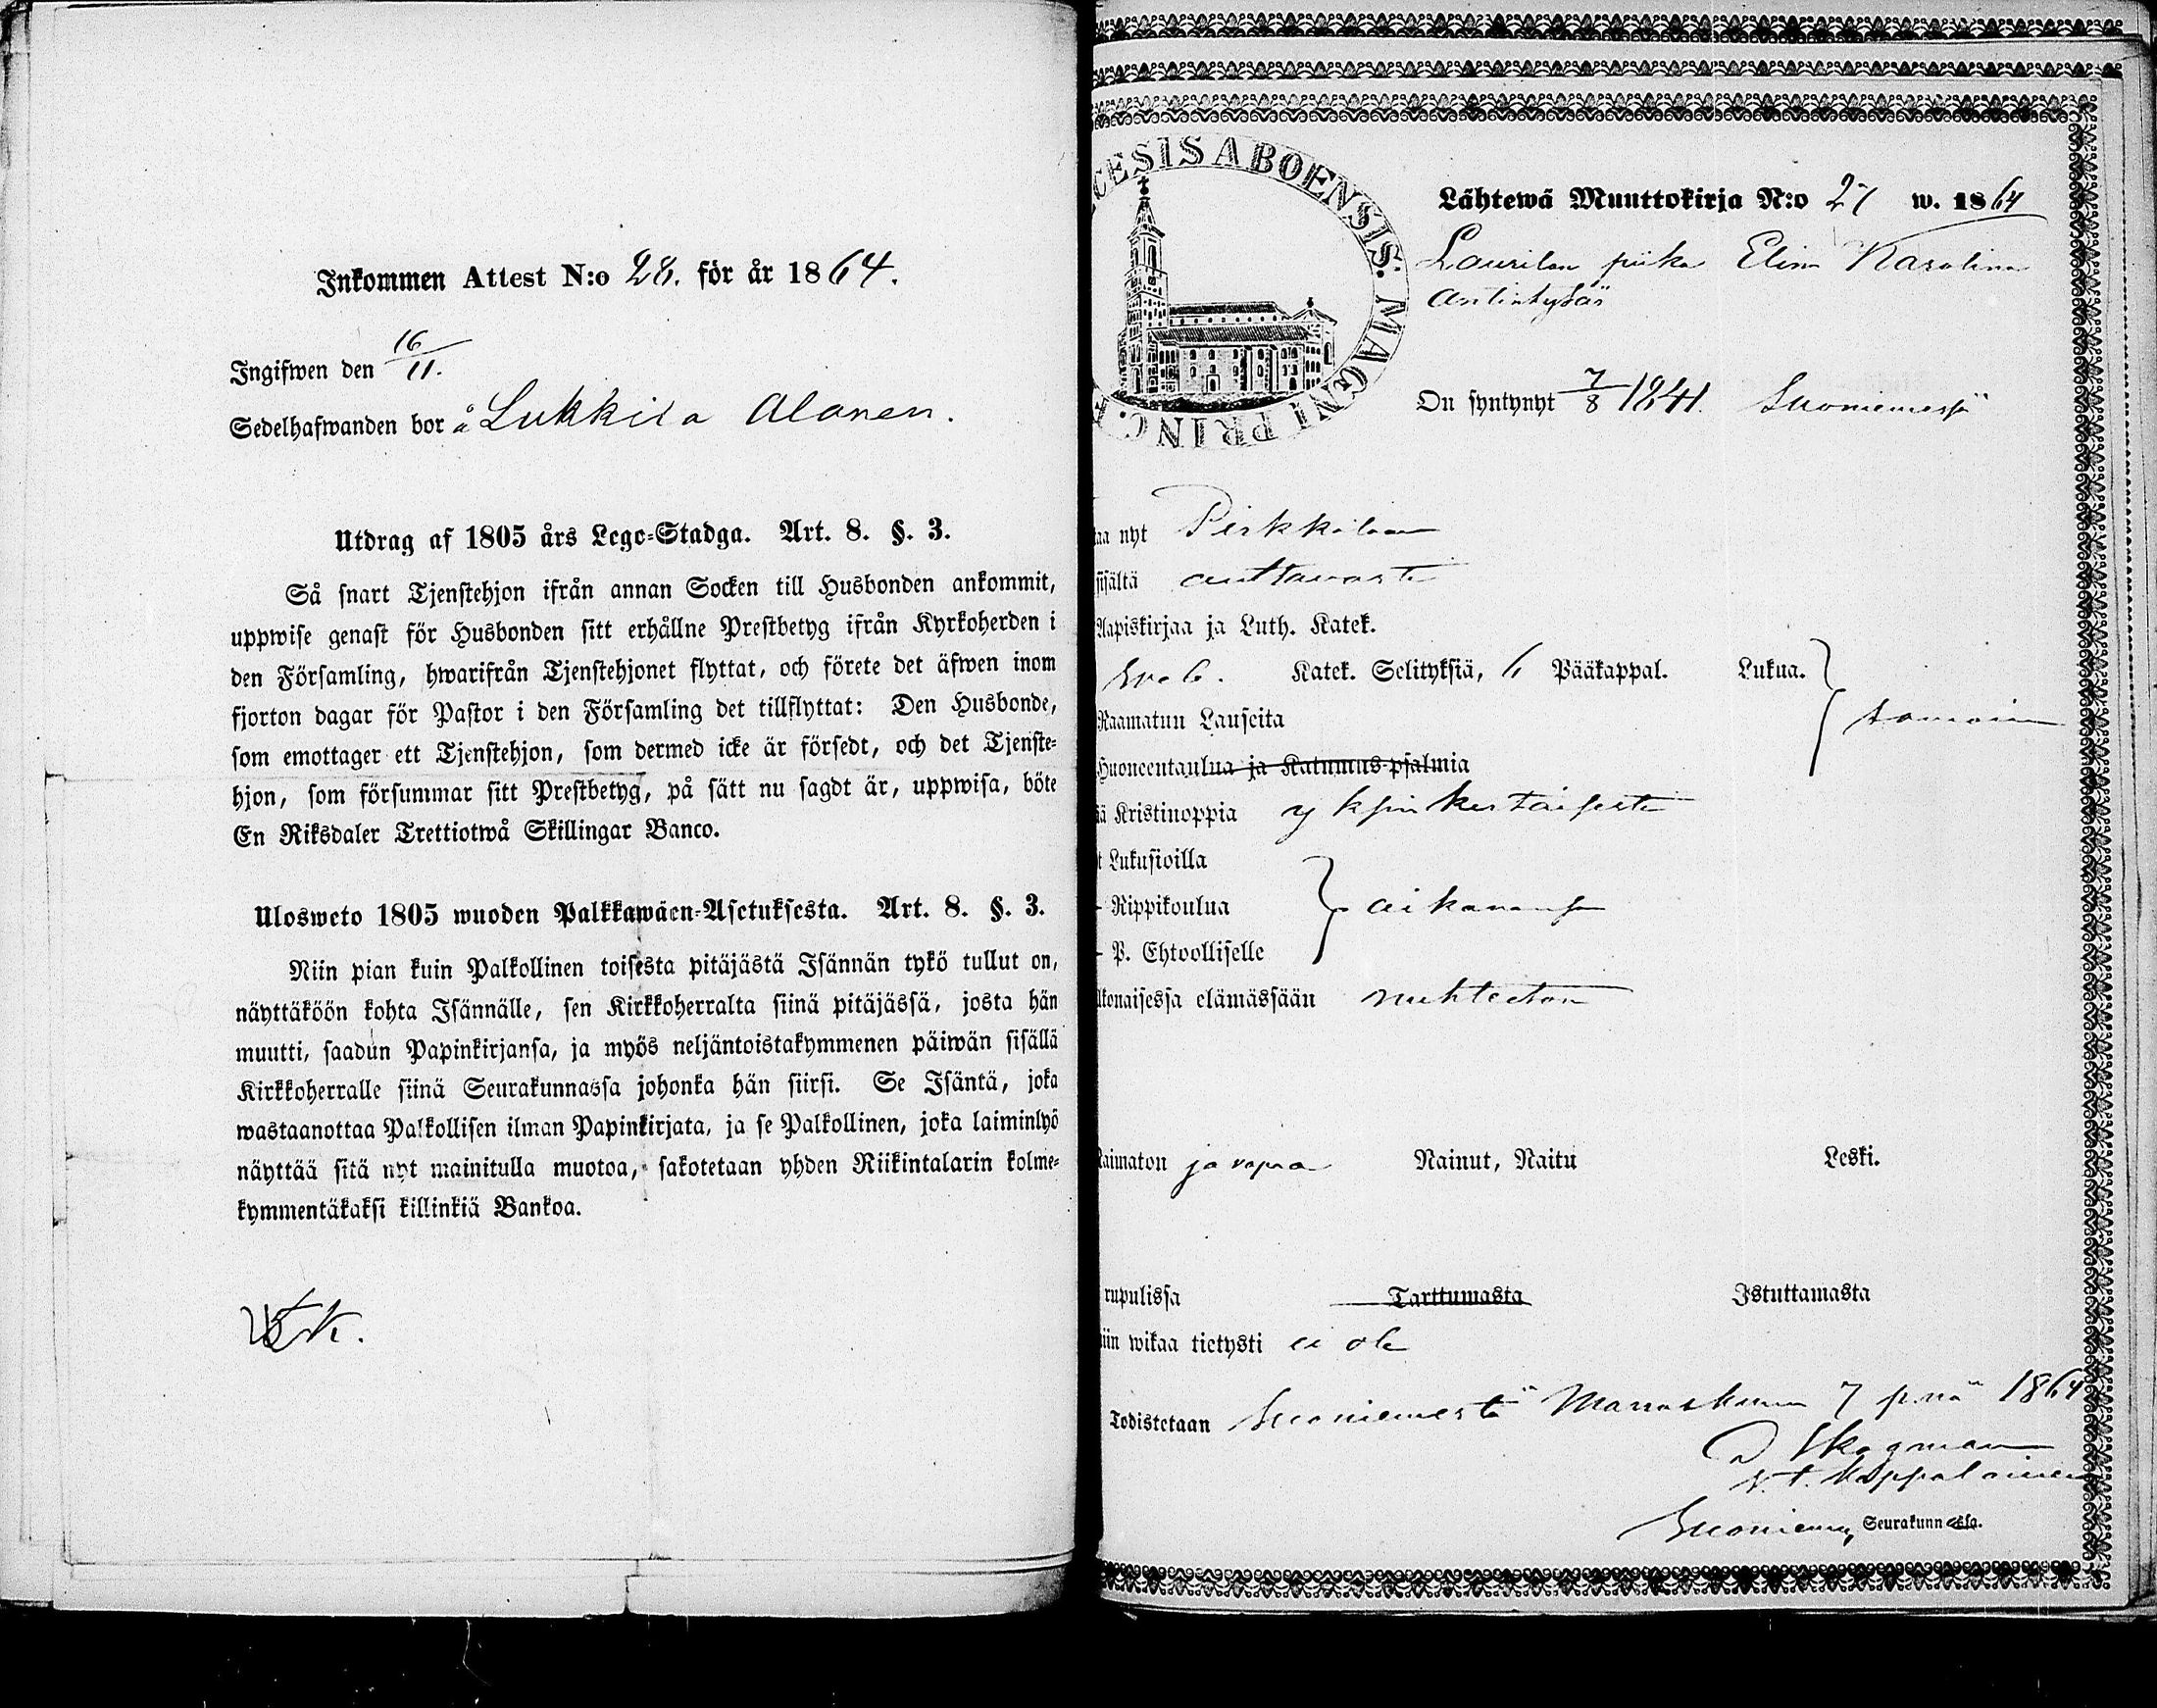 Inkommen Attest N:o 28. för år 1864.
Ingifwen den 16/11.
Sedelhafwanden bor å Lukkila Alanen.
Utdrag af 1805 års Lego-Stadga. Art. 8. §. 3.
Så snart Tjenstehjon ifrån annan Socken till Husbonden ankommit,
uppwise genast för Husbonden sitt erhållne Prestbetyg ifrån Kyrkoherden i
den Församling, hwarifrån Tjenstehjonet flyttat, och förete det äfwen inom
fjorton dagar för Pastor i den Församling det tillflyttat: Den Husbonde,
som emottager ett Tjenstehjon, som dermed icke är försedt, och det Tjenste-
hjon, som försummar sitt Prestbetyg, på sätt nu sagdt är, uppwisa, böte
En Riksdaler Trettiotwå Skillingar Banco.
Ulosweto 1805 wuoden Palkkawäen-Asetuksesta. Art. 8. §. 3.
Niin pian kuin Palkollinen toisesta pitäjästä Isännän tykö tullut on,
näyttäköön kohta Isännälle, sen Kirkkoherralta siinä pitäjässä, josta hän
muutti, saadun Papinkirjansa, ja myös neljäntoistakymmenen päiwän sisällä
Kirkkoherralle siinä Seurakunnassa johonka hän siirsi. Se Isäntä, joka
wastaanottaa Palkollisen ilman Papinkirjata, ja se Palkollinen, joka laiminlyö
näyttää sitä nyt mainitulla muotoa, sakotetaan yhden Riikintalarin kolme-
kymmentäkaksi killinkiä Bankoa.
CESIS ABOENSIS. MAGNI PRINC.
Lähtewä Muuttokirja N:o 27 w. 1864
Laurilan piika Elina Karolina
Antintytär
On syntynyt 7/8 1841. Suoniemessä
aa nyt Pirkkalaan
sisältä auttavasti
Aapiskirjaa ja Luth. Katek.
Katek. Selityksiä, 6 Pääkappal. Lukua.
Raamatun Lauseita samoin
Huoneentaulua ja Katumus-psalmia
ä Kristinoppia yksinkertaisesti
t Lukusioilla
- Rippikoulua aikanansa
- P. Ehtoolliselle
lkonaisessa elämässään nuhteeton
Naimaton ja vapaa Nainut, Naitu Leski.
rupulissa Tarttumasta Istuttamasta
iin wikaa tietysti ei ole
Todistetaan Suoniemestä Marraskuun 7 p:nä 1864
Skogman
v. t. Kappalainen
Suoniemen Seurakunnassa.